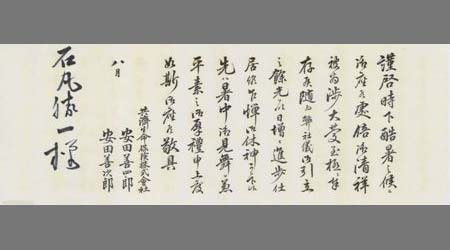 謹啓時下酷暑之候ニ
御座候処倍御清祥
被為渉大慶至極奉
存候随而弊社儀御引立
之餘光ニ日増ニ進歩仕
居候乍憚御休神
先ハ暑中御見舞兼
平素之御厚禮申上度
如斯御座候敬具
八月
共済生命保険株式会社
安田善四郎
安田善次郎
石丸 一様